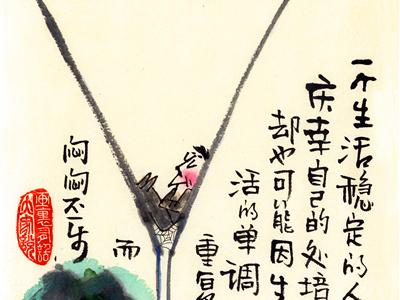 一个生活稳定的人
庆幸自己的处境
却也可能因生
活的单调
重复
而
闷闷不乐